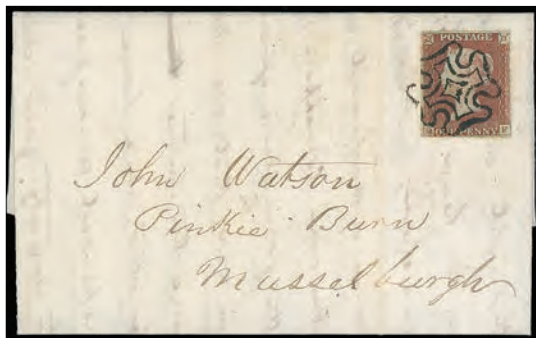 POSTAGE
ONE PENNY
John Watson
Pinkie Burn
Musselburgh